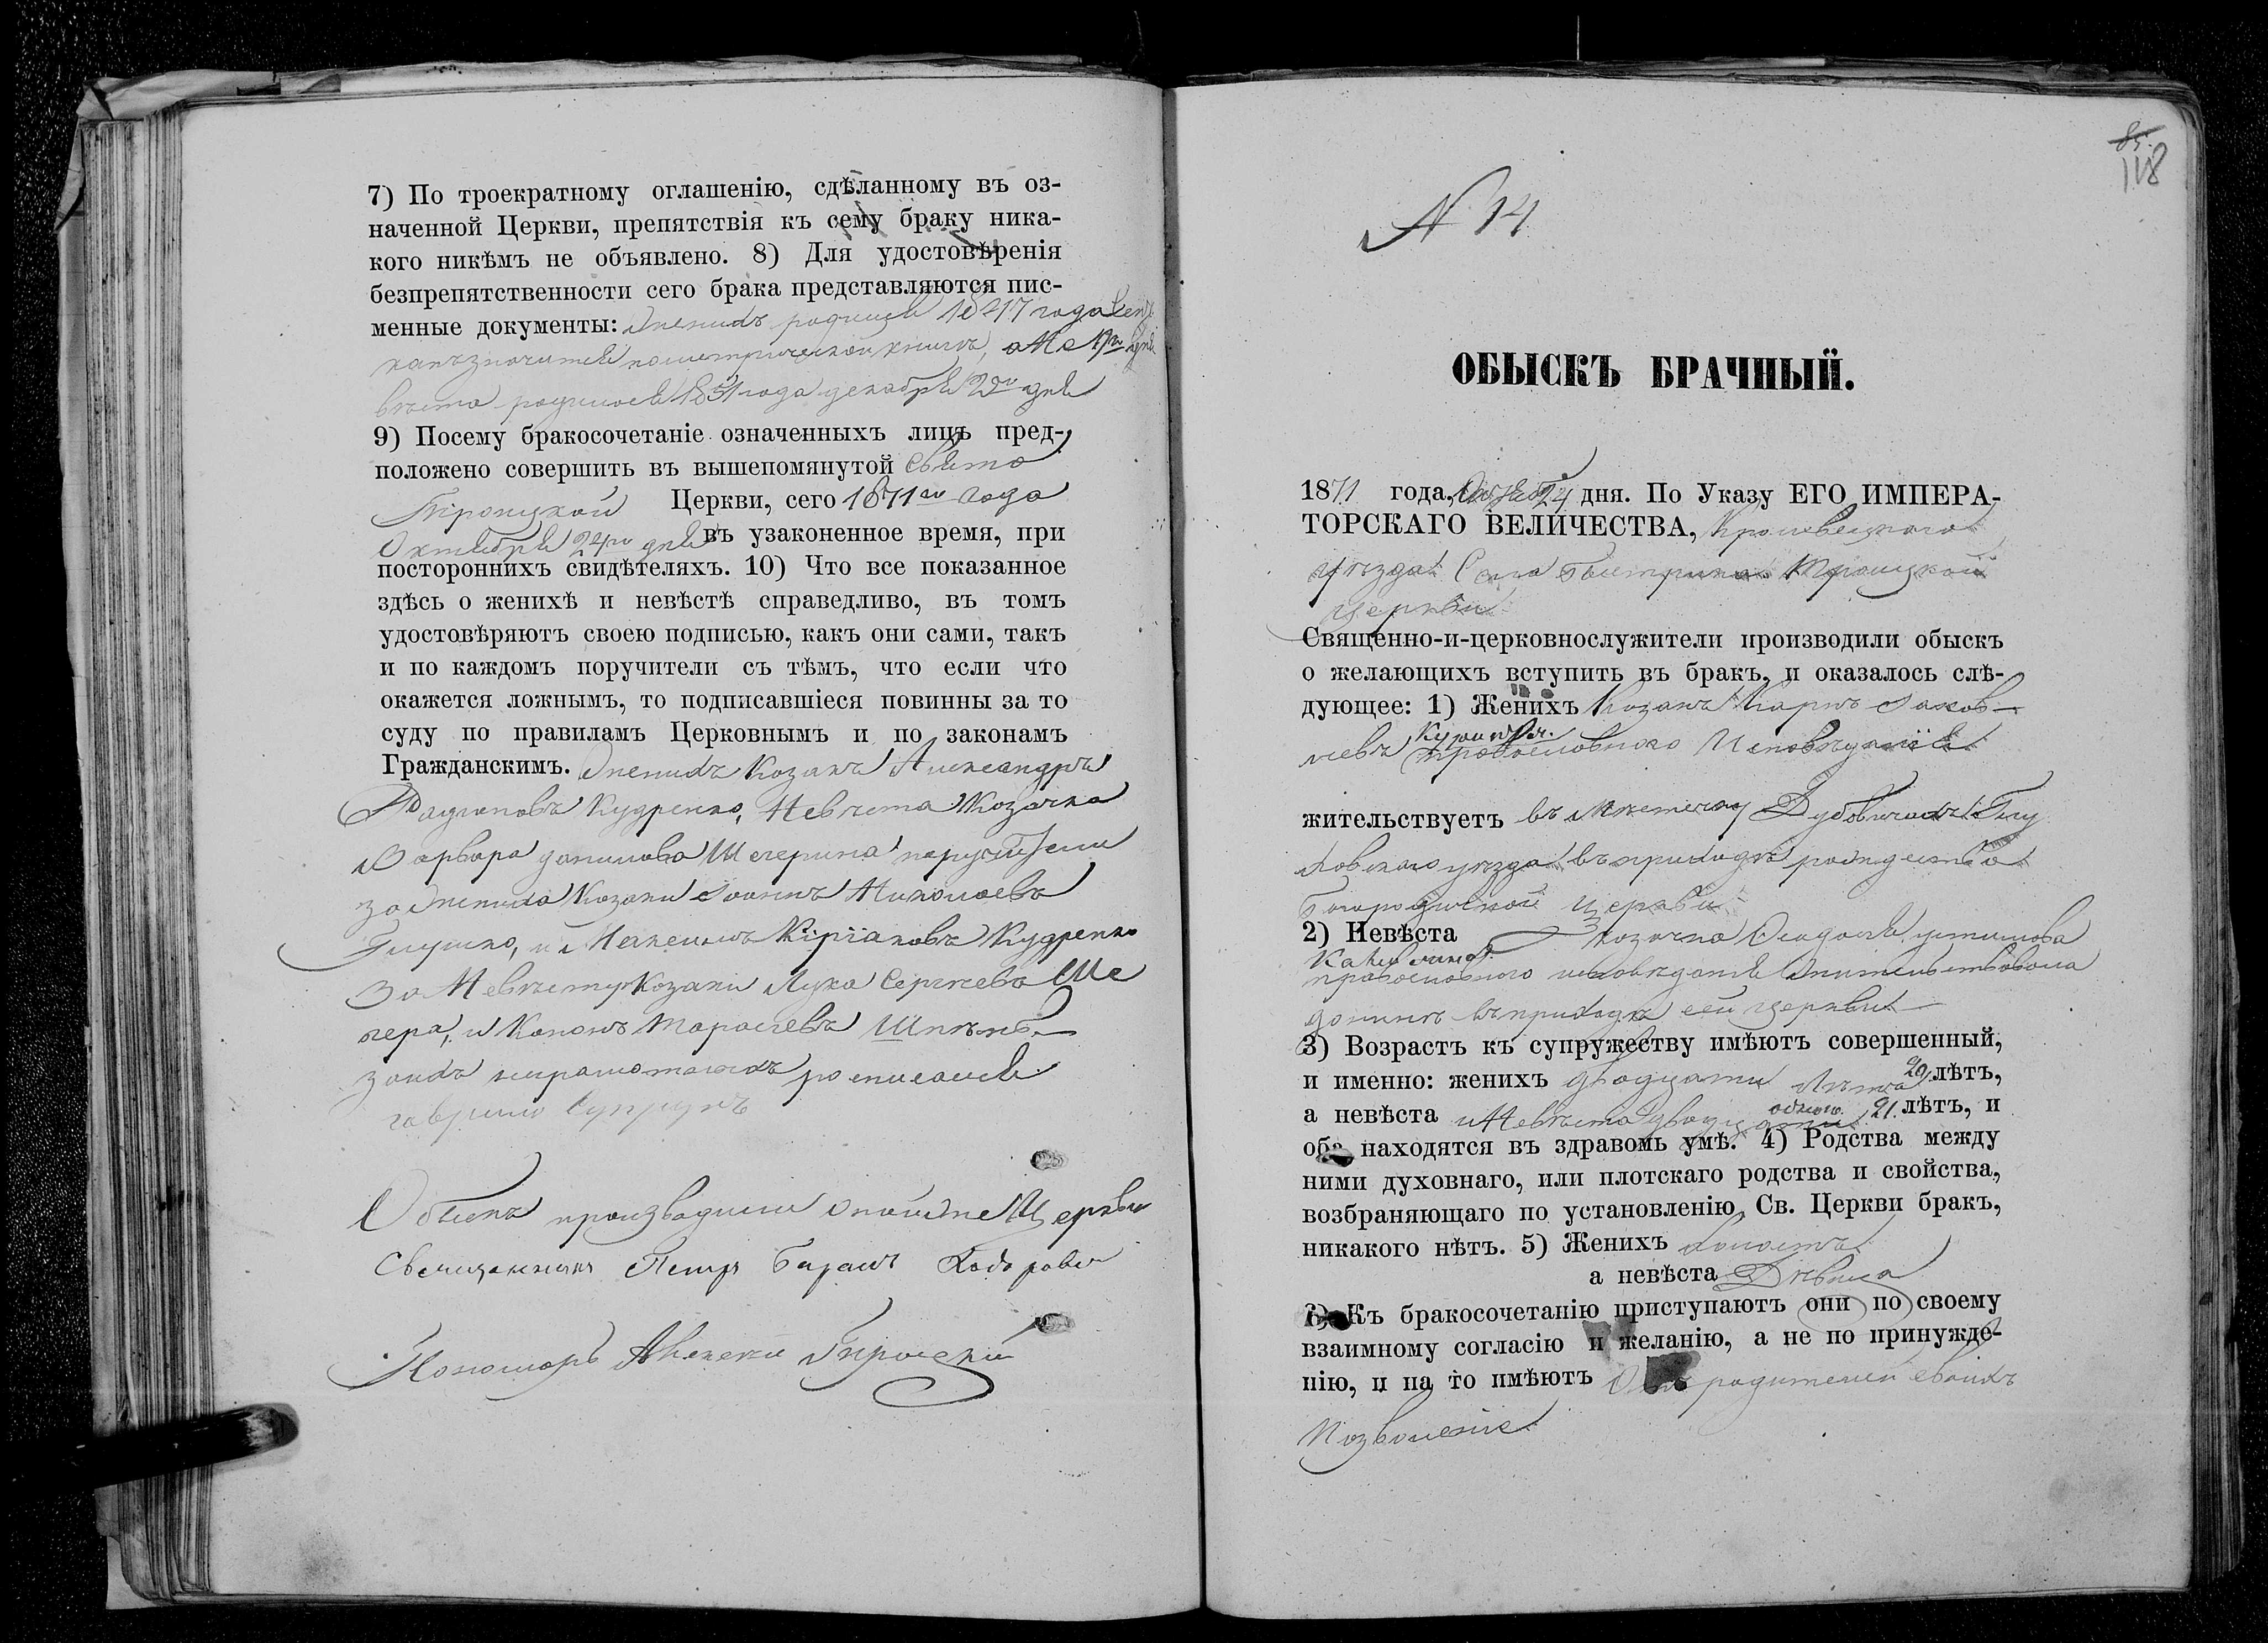 7) По троекратному оглашенію, сдѣланному въ оз-
наченной Церкви, препятствія къ сему браку ника-
кого никѣмъ не объявлено. 8) Для удостовѣренія
безпрепятственности сего брака представляются пис-
менные документы: женихъ родился года
невѣста родилась года декабря дня
9) Посему бракосочетаніе означенныхъ лицъ пред-
положено совершить въ вышепомянутой Свято
Троицкой Церкви, сего 1871го года
Октября 24го дня въ узаконенное время, при
постороннихъ свидѣтеляхъ. 10) Что все показанное
здѣсь о женихѣ и невѣстѣ справедливо, въ томъ
удостовѣряютъ своею подписью, какъ они сами, такъ
и по каждомъ поручители съ тѣмъ, что если что
окажется ложнымъ, то подписавшіеся повинны за то
суду по правиламъ Церковнымъ и по законамъ
Гражданскимъ. Женихъ Козакъ Александръ
Радіоновъ Кудренко, Невѣста Козачка
Варвара данилова Шечерина поручители
за жениха Козаки Іоаннъ Николаевъ
Глушко, и Кіріаковъ Кудренко
За Невѣсту Козаки Лука Сергѣевъ Ше
чера, и Кононъ Тарасіевъ
за ихъ неграмотныхъ росписался
гаврило Супрунъ
Обыскъ производили Церкви
Священникъ Петръ
Пономарь Алексѣй
85.
118
N 14
ОБЫСКЪ БРАЧНЫЙ.
1871 года, Октября 24 дня. По Указу ЕГО ИМПЕРА-
ТОРСКАГО ВЕЛИЧЕСТВА, Кролевецкого
уѣзда Села Быстрика Троицкой
церкви
Священно-и-церковнослужители производили обыскъ
о желающихъ вступить въ бракъ, и оказалось слѣ-
дующее: 1) Женихъ Козакъ Карпъ Іаков-
левъ православного Исповѣданія
жительствуетъ въ мѣстечку Дубовичахъ Глу
ховского уѣзда въ приходѣ рождества
богородичной церкви
2) Невѣста Козачка устимова
православного исповѣданія жительствовала
донинѣ въ приходѣ сей церкви
3) Возрастъ къ супружеству имѣютъ совершенный,
и именно: женихъ двадцати лѣтъ,
а невѣста и Невѣста двадцати одного 21 лѣтъ, и
оба находятся въ здравомъ умѣ. 4) Родства между
ними духовнаго, или плотскаго родства и свойства,
возбраняющаго по установленію Св. Церкви бракъ,
никакого нѣтъ. 5) Женихъ холостъ
а невѣста Дѣвица
6) Къ бракосочетанію приступаютъ они по своему
взаимному согласію и желанію, а не по принужде-
нію, и на то имѣютъ Отъ родителей своихъ
Позволеніе